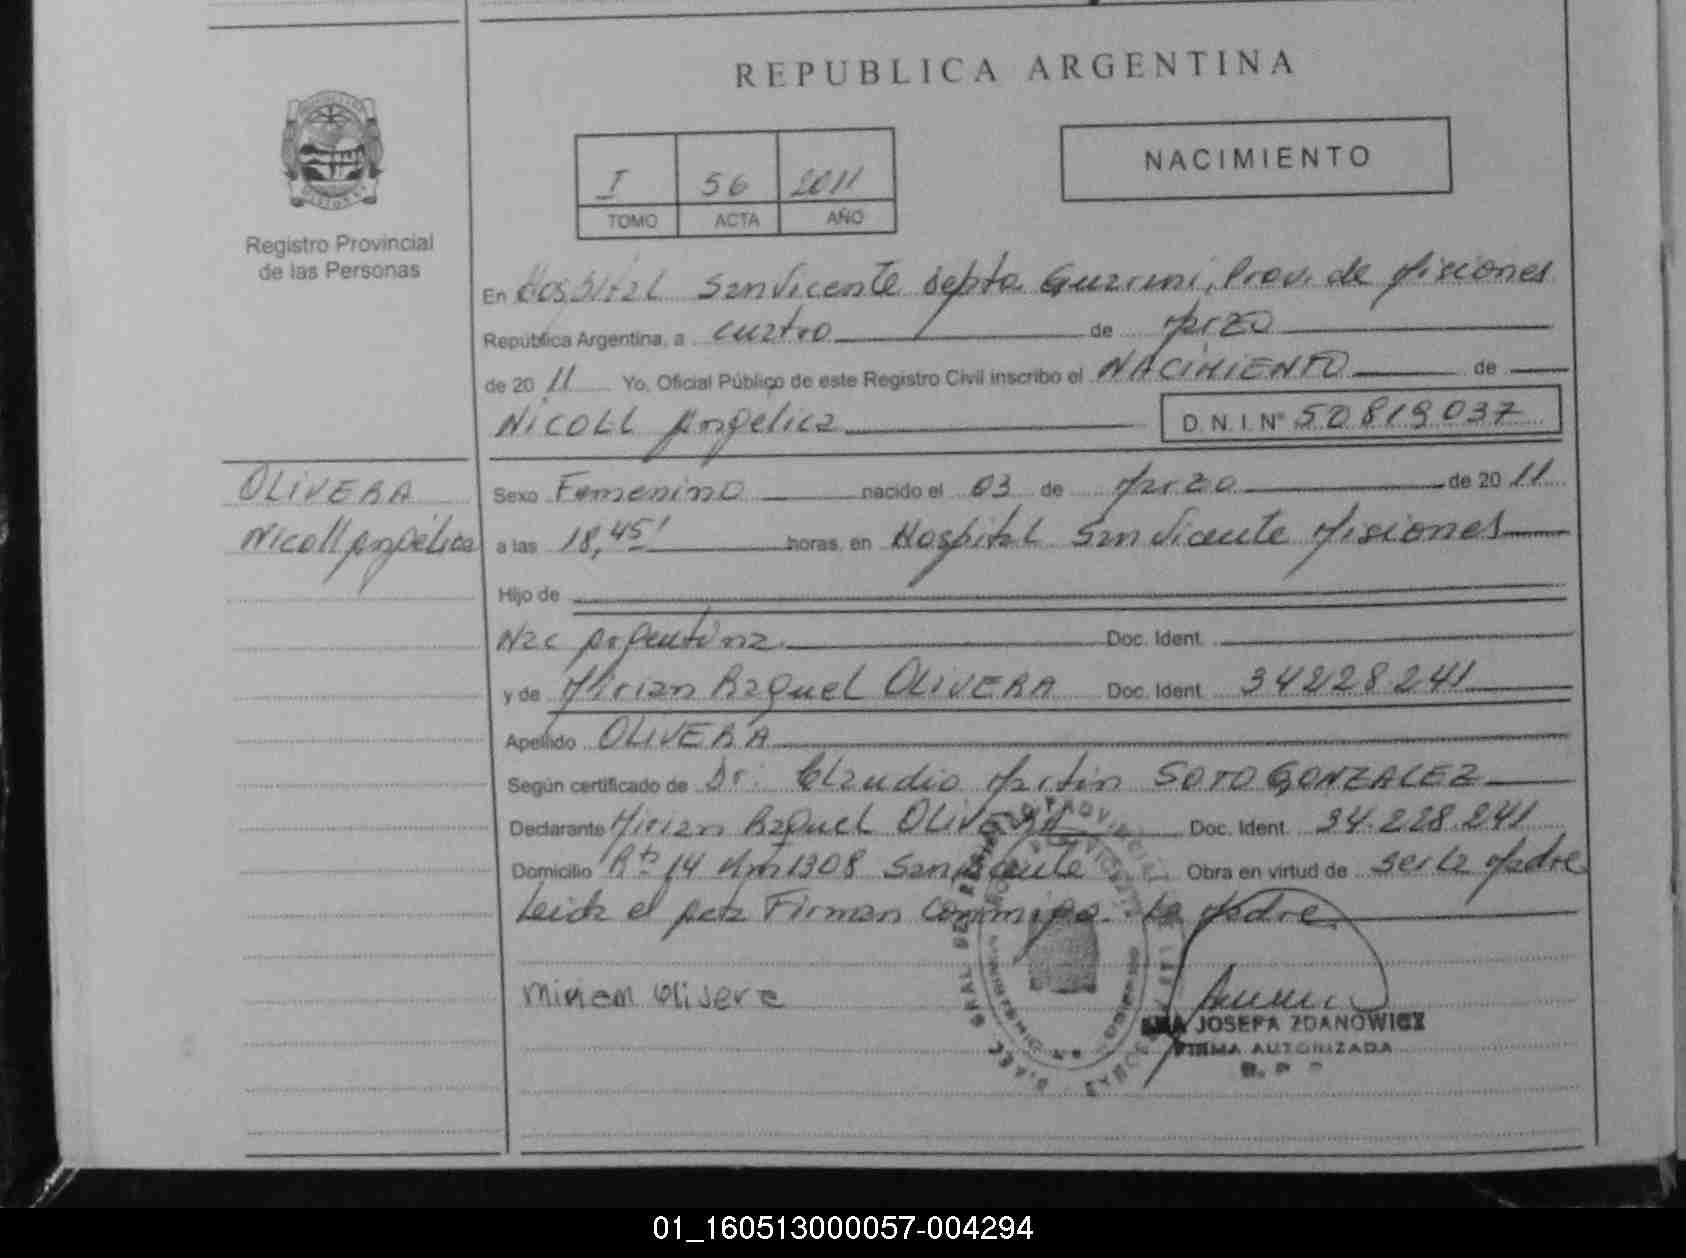 REPUBLICA ARGENTINA
NACIMIENTO
I 56 2011
TOMO ACTA AÑO
Registro Provincial
de las Personas
En Hospital San Vicente Depto Guarani, Prov. de Misiones
República Argentina, a cuatro de Marzo
de 20 11 Yo, Oficial Público de este Registro Civil inscribo el NACIMIENTO de
NICOLL Angelica D. N. I. Nº 50819037
OLIVERA
Nicoll Angélica
Sexo Femenino nacido el 03 de Marzo de 20 11
a las 18,45' horas, en Hospital San Vicente Misiones
Hijo de
Nac Argentina Doc. Ident.
y de Mirian Raquel OLIVERA Doc. Ident. 34228241
Apellido OLIVERA
Según certificado de Dr. Claudio Martin SOTO GONZALEZ
Declarante Mirian Raquel OLIVERA Doc. Ident. 34.228.241
Domicilio Rta 14 Km 1308 San Vicente Obra en virtud de ser la Madre
Leida el Acta Firman Conmigo La Madre
Miriam Olivera
JOSEFA ZDANOWICZ
FIRMA AUTORIZADA
01_160513000057-004294